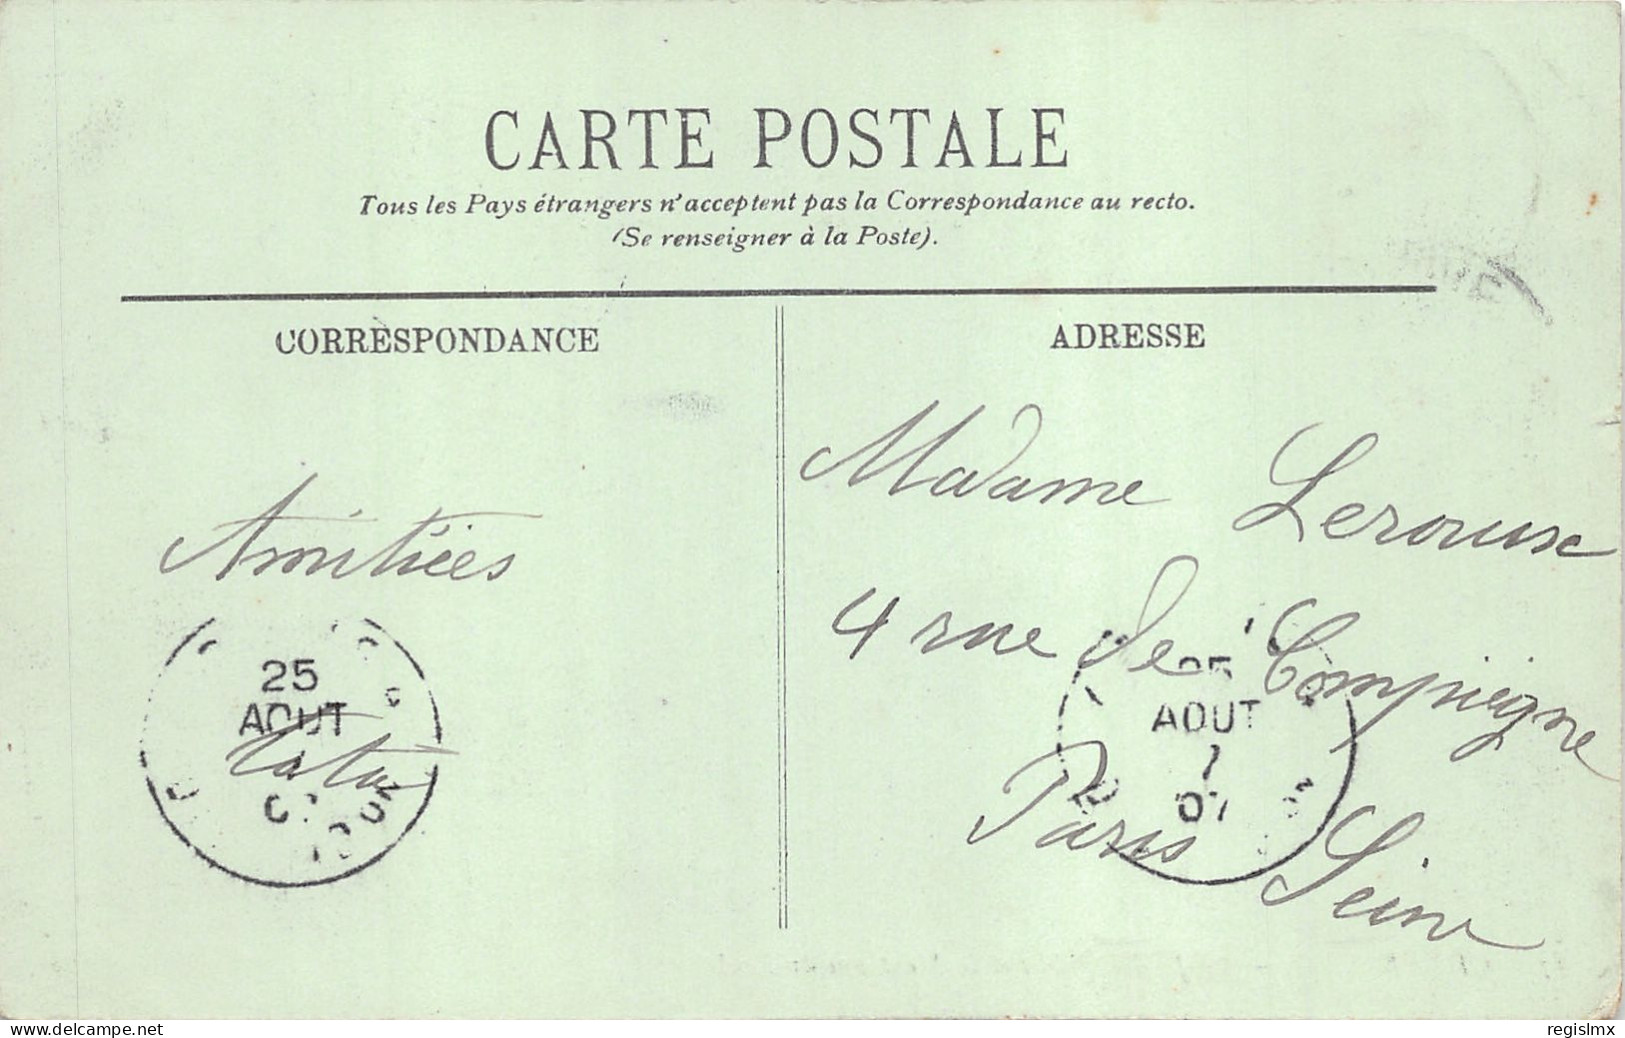 CARTE POSTALE
Tous les Pays étrangers n'acceptent pas la Correspondance au recto.
(Se renseigner à la Poste).
CORRESPONDANCE
ADRESSE
Amitiées
25
AOUT
Madame Leroux
4 rue de Compiègne
Paris Seine
AOUT
7
07
www.delcampe.net
regislmx